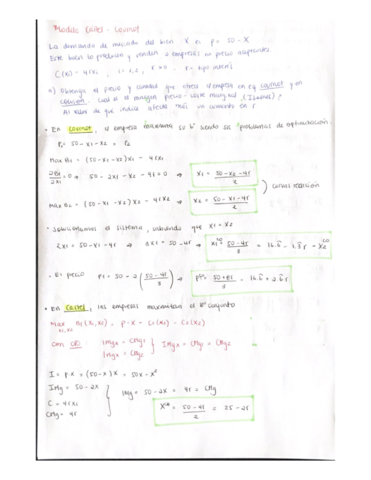 Modelo Cártel - Cournot
La demanda de mercado del bien X es p = 50 - X
Este bien lo producen y venden 2 empresas en precio aceptantes
C(xi) = 4rxi, i = 1,2, r > 0 r = tipo interés
a) Obtenga el precio y cantidad que ofrece el empresa en eq cournot y en
colusión. Cuál es el margen precio - coste marginal (Lerner) y
• En cournot, la empresa maximiza su bº siendo los problemas de optimización.
P1 = 50 - x1 - x2 = P2
Max B1 = (50 - x1 - x2)x1 - 4rx1
∂B1/∂x1 = 0 → 50 - 2x1 - x2 - 4r = 0 → x1 = (50 - x2 - 4r)/2
Max B2 = (50 - x1 - x2)x2 - 4rx2 → x2 = (50 - x1 - 4r)/2
curvas reacción
• Solucionamos el sistema, sabiendo que x1 = x2
2x1 = 50 - x1 - 4r → 3x1 = 50 - 4r → x1 = (50 - 4r)/3 = 16.6 - 1.3r = x2
• El precio P1 = 50 - 2((50 - 4r)/3) → P = (50 + 8r)/3 = 16.6 + 2.6r
• En Cartel, las empresas maximizan el bº conjunto
Max x1,x2 B(x1,x2) = p·X - C1(x1) - C2(x2)
con CPO: IMg1 = CMg1
IMg2 = CMg2
IMg = CMg1 = CMg2
I = p·X = (50 - X)X = 50X - X²
IMg = 50 - 2X
IMg = 50 - 2X = 4r = CMg
C = 4rX
CMg = 4r
X = (50 - 4r)/2 = 25 - 2r